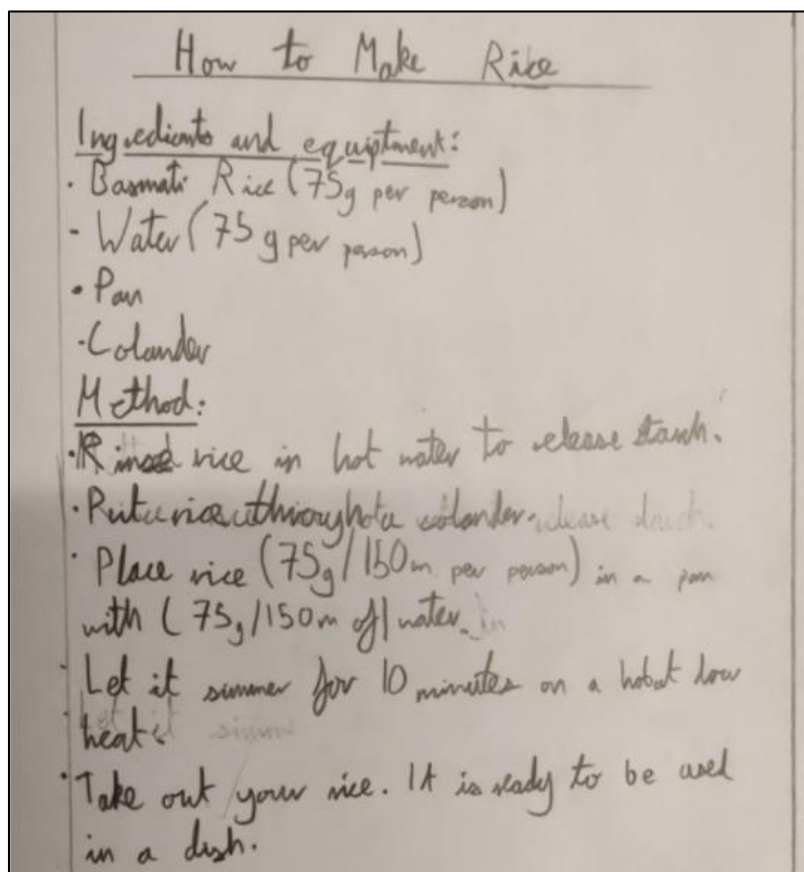 How to Make Rice
Ingredients and equiptment:
· Basmati Rice (75g per person)
- Water (75g per person)
· Pan
· Colander
Method:
· Rinse rice in hot water to release starch.
· Put rice through a colander.
· Place rice (75g/150m per person) in a pan
with (75g/150m of) water.
· Let it simmer for 10 minutes on a hob at low
heat.
· Take out your rice. It is ready to be used
in a dish.